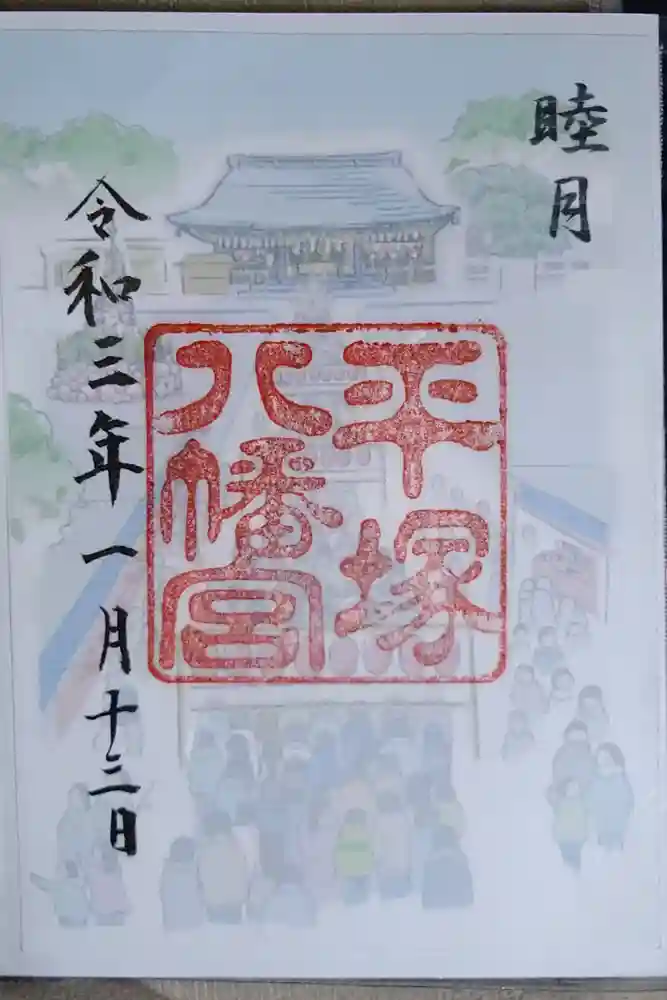 睦月
平塚
八幡宮
令和三年一月十三日